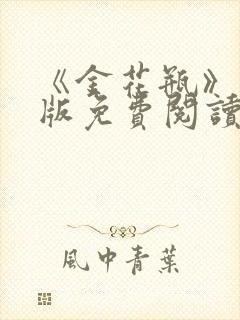 《金花瓶》
版免費閱讀
風中青葉